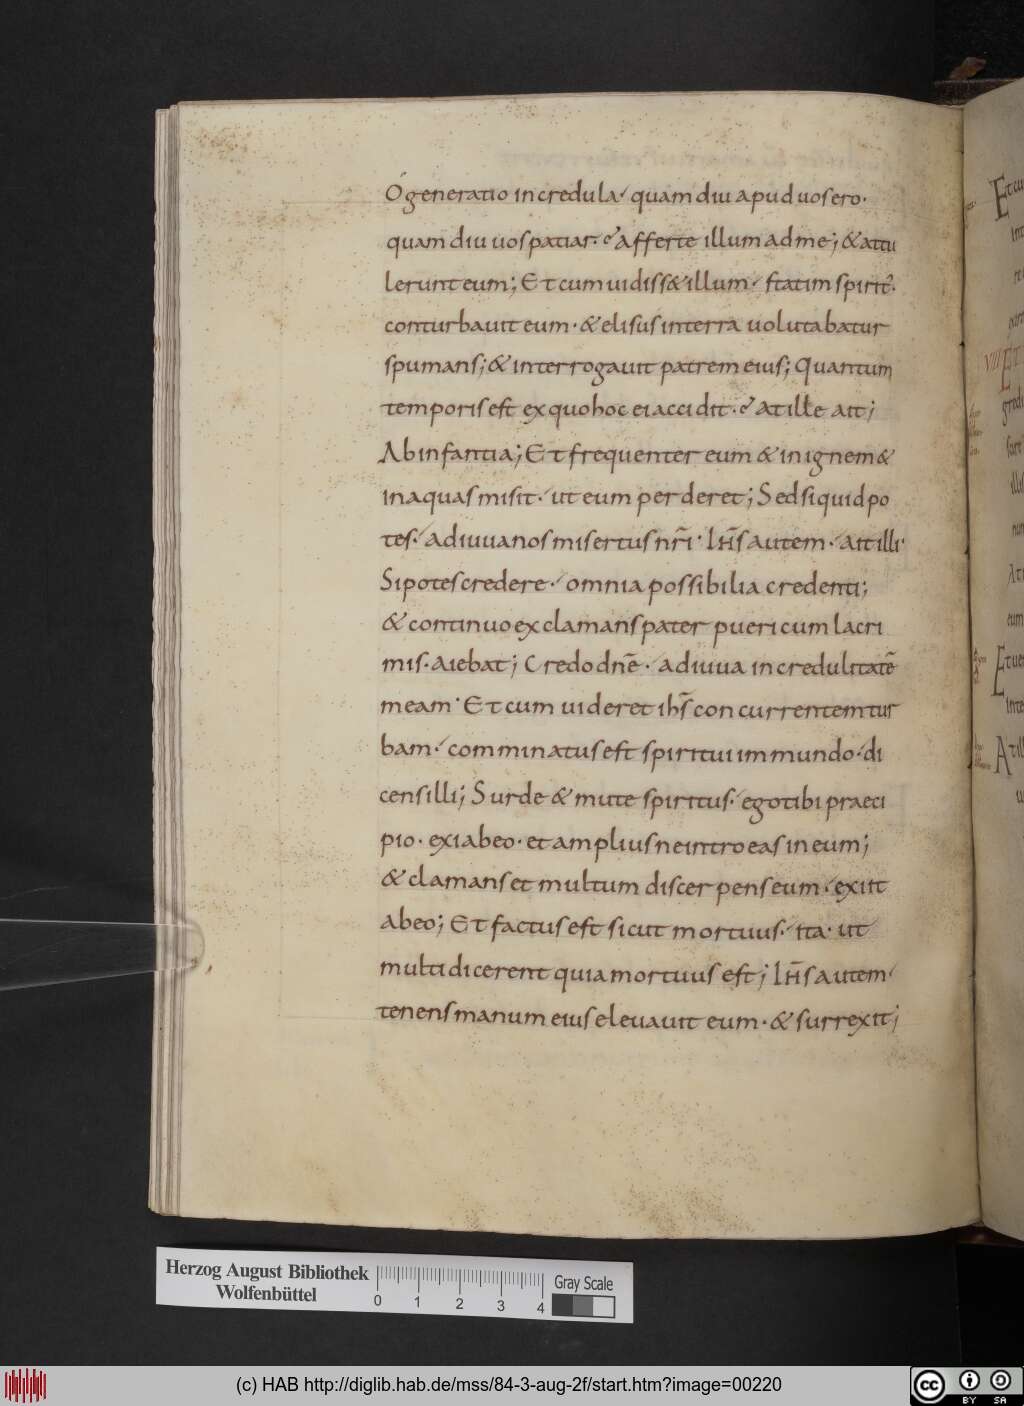 O generatio incredula· quamdiu apud uos ero·
quamdiu uos patiar· afferte illum ad me; & attu
lerunt eum; Et cum uidiss& illum· statim spirit᾽·
conturbauit eum· & elisus in terra uolutabatur
spumans; & interrogauit patrem eius; Quantum
temporis est ex quo hoc ei accidit· at ille ait;
Ab infantia; Et frequenter eum & in ignem &
in aquas misit· ut eum perderet; Sed si quid po
tes· adiuua nos misertus nr̄i· IH̄s autem· ait illi·
Si potes credere· omnia possibilia credenti;
& continuo exclamans pater pueri cum lacri
mis· aiebat; Credo dnē· adiuua incredulitatē
meam· Et cum uideret ihs̄ concurrentem tur
bam· comminatus est spiritui immundo· di
cens illi; Surde & mute spiritus· ego tibi praeci
pio· exi ab eo· et amplius ne introeas in eum;
& clamans et multum discerpens eum· exiit
ab eo; Et factus est sicut mortuus· ita· ut
multi dicerent quia mortuus est; IH̄s autem·
tenens manum eius eleuauit eum· & surrexit;
Herzog August Bibliothek
Wolfenbüttel
0 1 2 3 4
Gray Scale
(c) HAB http://diglib.hab.de/mss/84-3-aug-2f/start.htm?image=00220
cc BY SA